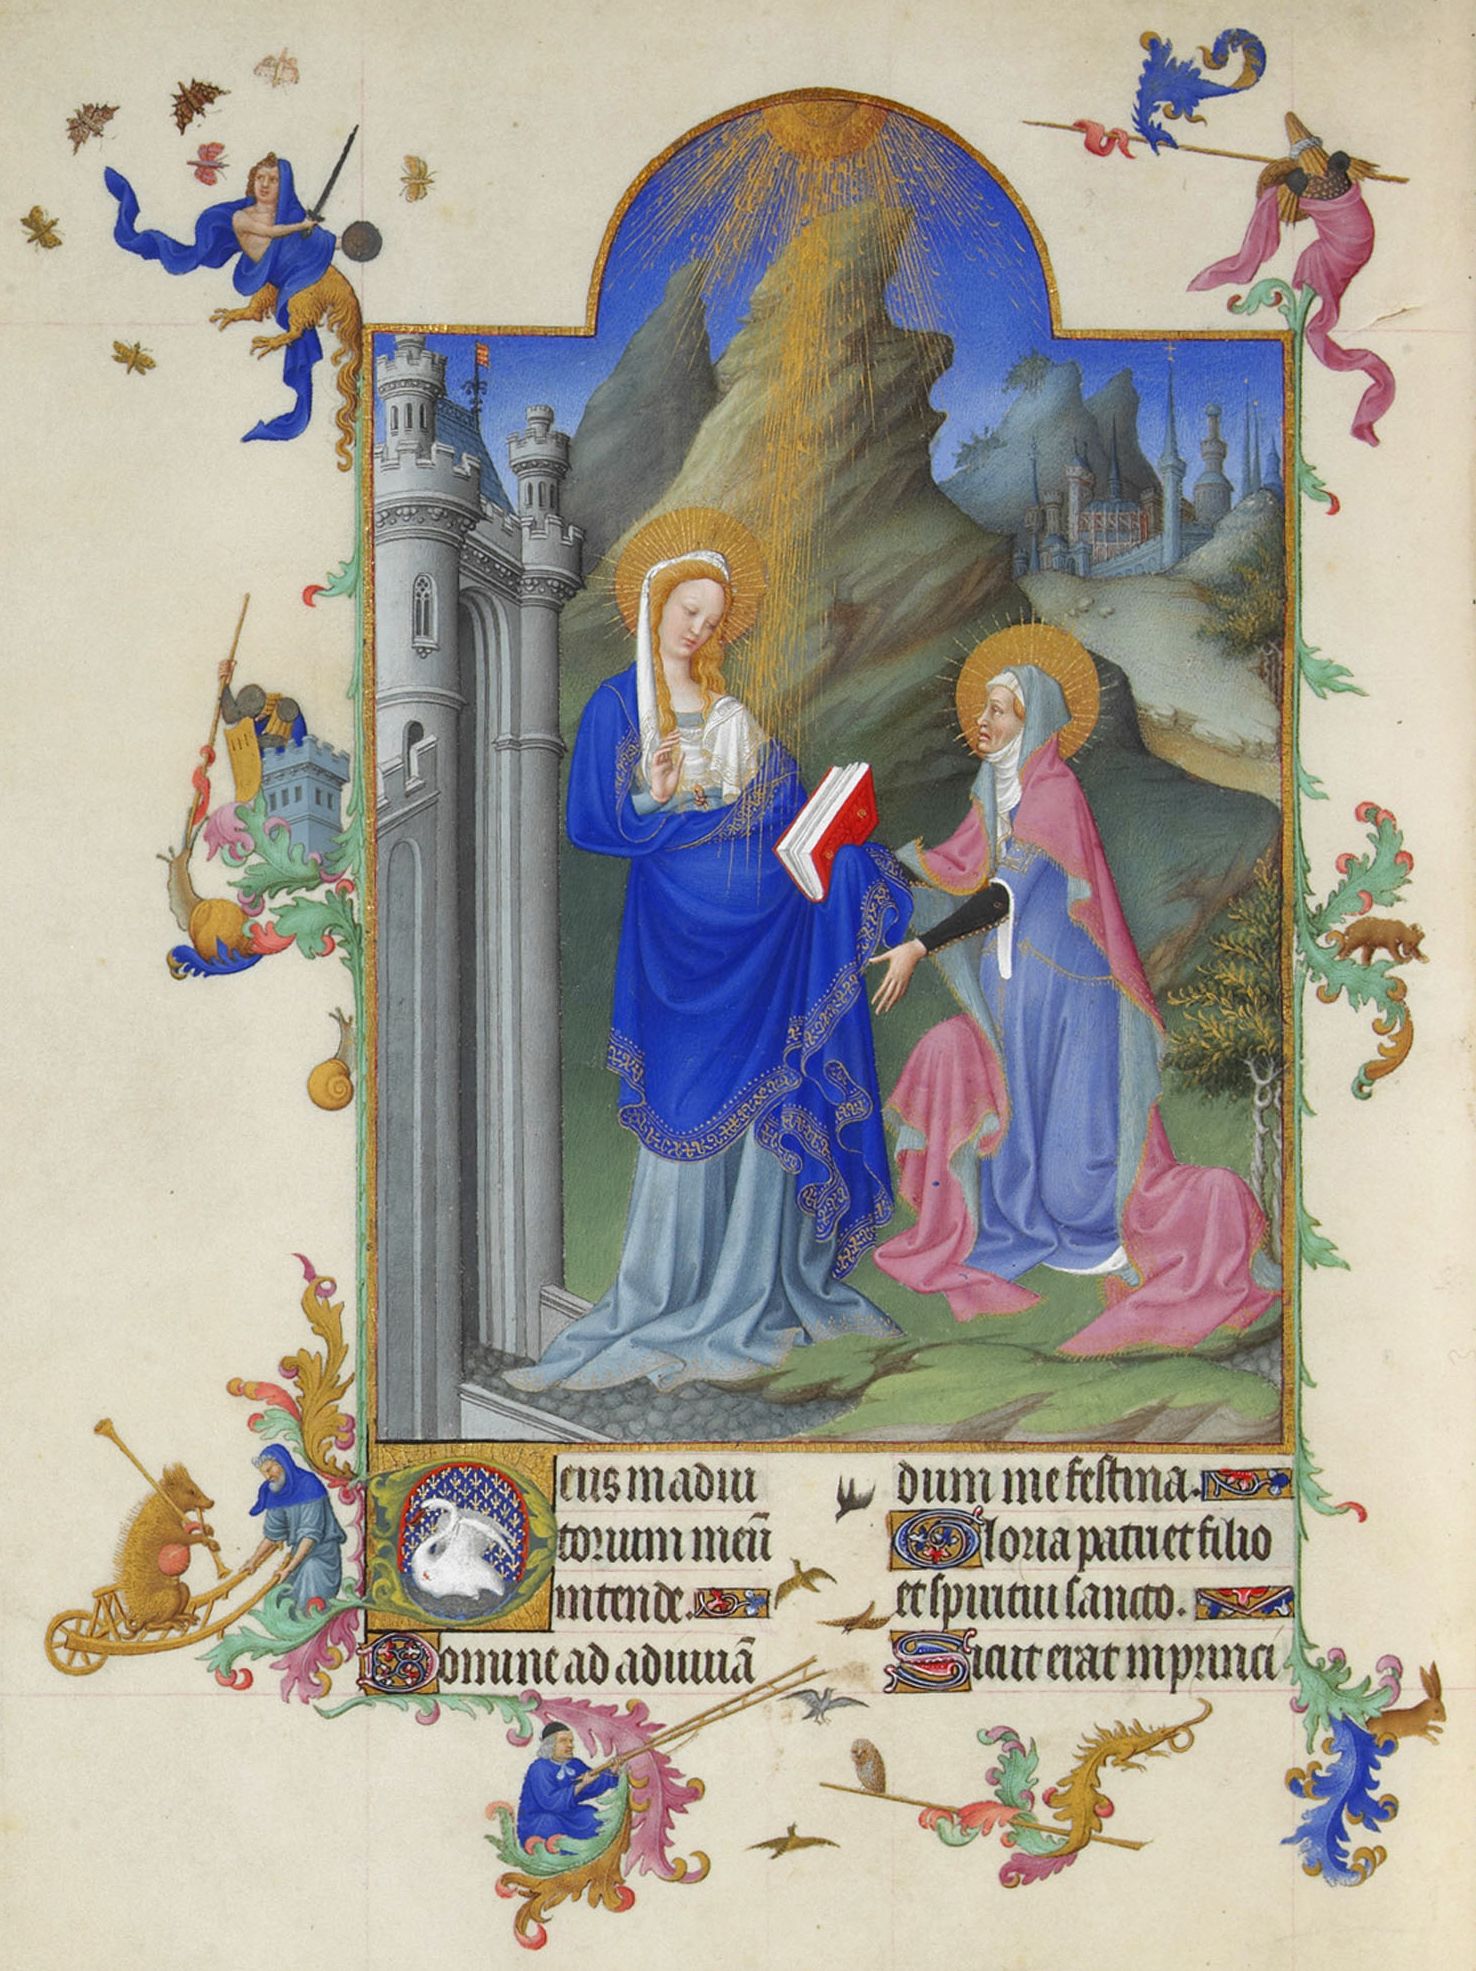 Deus in adiu
torium meū
intende.
Domine ad adiuuā
dum me festina.
Gloria patri et filio
et spiritui sancto.
Sicut erat in princi